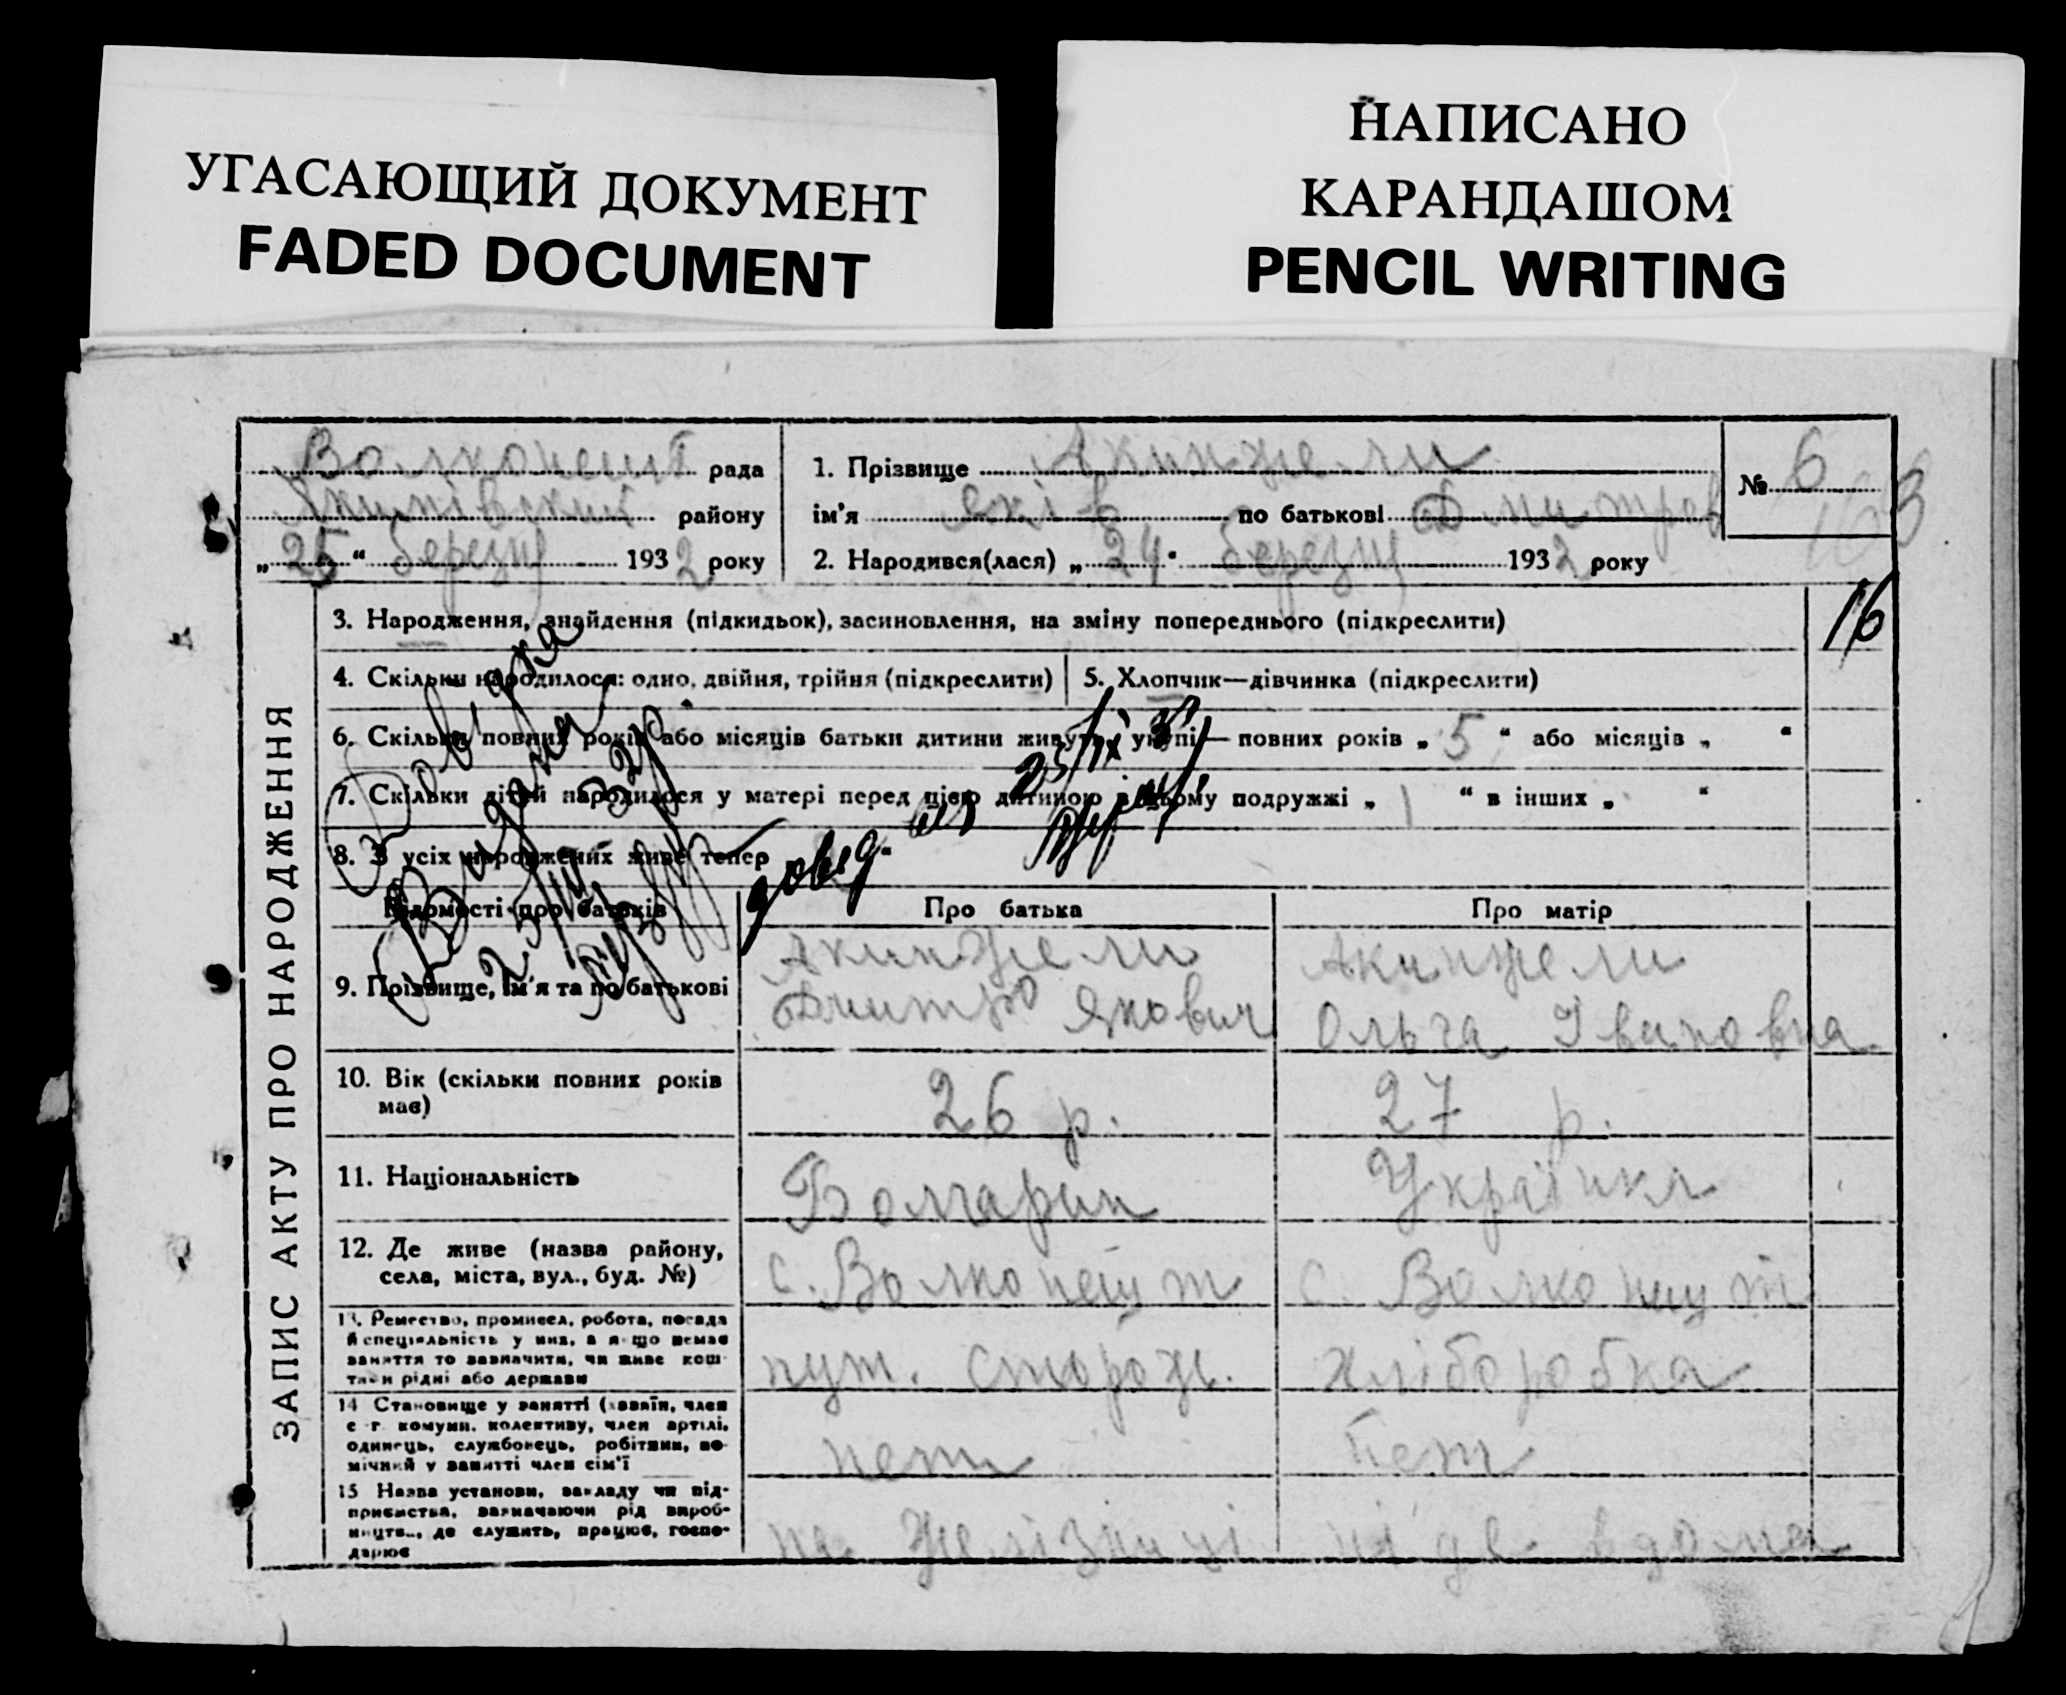 УГАСАЮЩИЙ ДОКУМЕНТ
FADED DOCUMENT
НАПИСАНО
КАРАНДАШОМ
PENCIL WRITING
Волконешт рада
Якимівський району
„25“ березня 1932 року
1. Прізвище Акинжели
ім'я Яків по батькові Дмитров
2. Народився(лася) „24“ березня 1932 року
№ 6
163
16
ЗАПИС АКТУ ПРО НАРОДЖЕННЯ
3. Народження, знайдення (підкидьок), засиновлення, на зміну попереднього (підкреслити)
4. Скільки народилося: одно, двійня, трійня (підкреслити)
5. Хлопчик—дівчинка (підкреслити)
6. Скільки повних років або місяців батьки дитини живуть укупі— повних років „ 5 “ або місяців „ “
7. Скільки дітей народилося у матері перед цією дитиною в цьому подружжі „ 1 “ в інших „ “
8. З усіх народжених живе тепер
Довідка
Видана
32р.
довід.
25/IX
Відомості про батьків
Про батька
Про матір
9. Прізвище, ім'я та по батькові
Акинжели
Дмитро Якович
Акинжели
Ольга Івановна
10. Вік (скільки повних років
має)
26 р.
27 р.
11. Національність
Болгарин
Українка
12. Де живе (назва району,
села, міста, вул., буд. №)
с. Волконешт
с. Волконешт
13. Ремество, промисел, робота, посада
й спеціяльність у них, а якщо немає
заняття то зазначити, чи живе кош
тами рідні або держави
пут. сторож.
хліборобка
14 Становище у занятті (хазяїн, член
с-г. комуни, колективу, член артілі,
одинець, службовець, робітник, по-
мічний у занятті член сім'ї
нет
нет
15 Назва установи, закладу чи під-
приємства, зазначаючи рід вироб-
ництва, де служить, працює, госпо-
дарює
на желізниці
ніде вдома